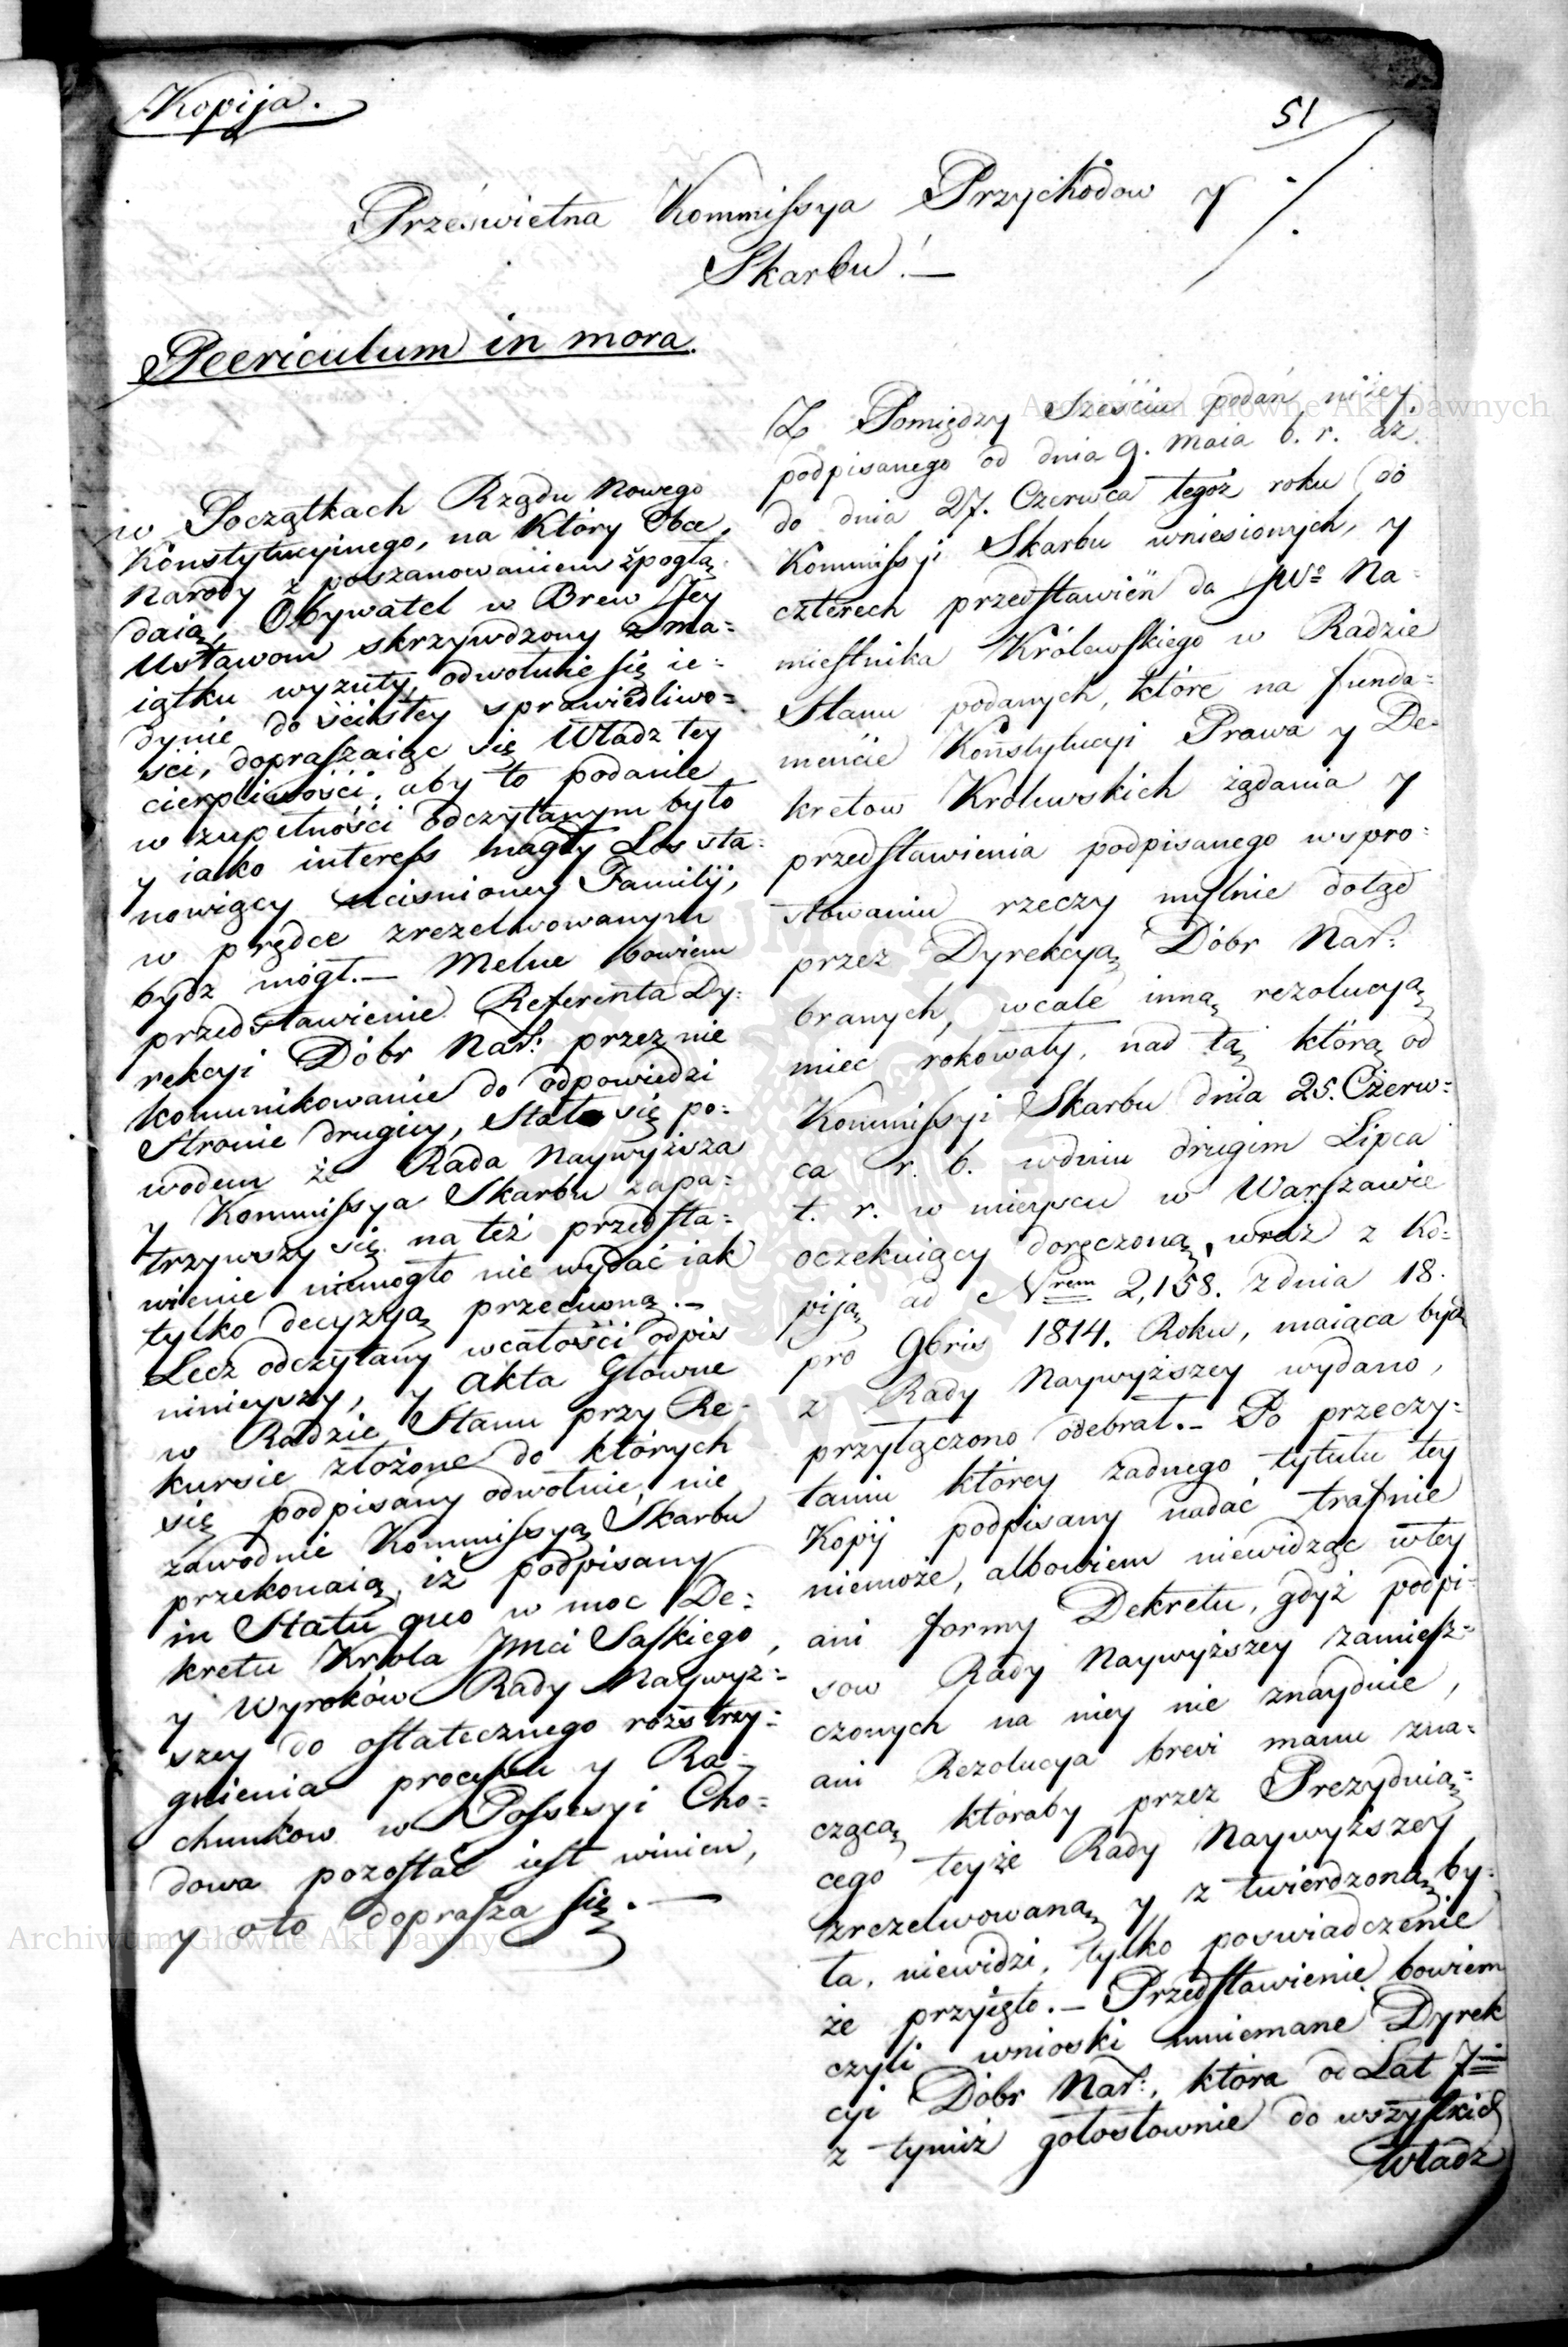 Kopija.
51
Prześwietna Kommissya Przychodow y
Skarbu!—
Peericulum in mora.
w Początkach Rządu Nowego
Konstytucyinego, na Który Obce
Narody z poszanowaniem spoglą-
daią, Obywatel w Brew Jey
Ustawom skrzywdzony z ma=
iątku wyzuty, odwołuie się ie=
dynie do ścisłey sprawiedliwo=
ści, dopraszaiąc się Władz tey
cierpliwości, aby to podanie
w zupełności odczytanym było
y iako interess nagły Los sta=
nowiący uciśnioney Familij,
w prędce zrezelwowanym
bydź mógł.— Melne bowiem
przedstawienie Referenta Dy=
rekcyi Dóbr Nar: przez nie
kommunikowanie do odpowiedzi
Stronie drugiey, Stało się po=
wodem że Rada Naywyższa
y Kommissya Skarbu zapa=
trzywszy się na też przedsta=
wienie niemogło nie wydać iak
tylko decyzyą przeciwną.—
Lecz odczytany wcałości odpis
ninieyszy, y Akta Główne
w Radzie Stanu przy Re-
kursie złożone do których
się podpisany odwołuie, nie
zawodnie Kommissyą Skarbu
przekonaią, iż podpisany
in Statu quo w moc De=
kretu Króla Jmci Saskiego,
y Wyroków Rady Naywyż=
szey do ostatecznego rozstrzy=
gnienia processu y Ra=
chunkow w Possessyi Cho=
dowa pozostać iest winien,
y oto doprasza się.—
Z Pomiędzy Sześciu podań niżey
podpisanego od dnia 9. Maia b. r. aż
do dnia 27. Czerwca tegoż roku do
Kommissyi Skarbu wniesionych, y
czterech przedstawień da JWo Na=
miestnika Królewskiego w Radzie
Stanu podanych, które na funda=
mencie Konstytucyi Prawa y De=
kretow Królewskich żądania y
przedstawienia podpisanego wspro=
stowaniu rzeczy mylnie dotąd
przez Dyrekcyą Dóbr Nar:
branych, wcale inną rezolucyą
mieć rokowały, nad tą którą od
Kommissyi Skarbu dnia 25. Czerw=
ca r. b. wdniu drugim Lipca
t. r. w mieyscu w Warszawie
oczekuiący doręczoną, wraz z Ko=
piją ad Nrem 2,158. z dnia 18.
pro 9bris 1814. Roku, maiąca bydź
z Rady Naywyższey wydano,
przyłączono odebrał.— Po przeczy=
taniu którey żadnego tytułu tey
Kopij podpisany nadać trafnie
niemoże, albowiem niewidząc wtey
ani formy Dekretu, gdyż podpi=
sow Rady Naywyższey zamiesz=
czonych na niey nie znayduie,
ani Rezolucya brevi manu zna=
czącą któraby przez Prezyduią=
cego teyże Rady Naywyższey
zrezelwowaną y z twierdzoną by=
ła, niewidzi, tylko poswiadczenie
że przyięto.— Przedstawienie bowiem
czyli wnioski mniemane Dyrek
cyi Dóbr Nar:, która od Lat 7iu
z tymiż gołosłownie do wszystkich
Władz
Archiwum Główne Akt Dawnych
Archiwum Główne Akt Dawnych